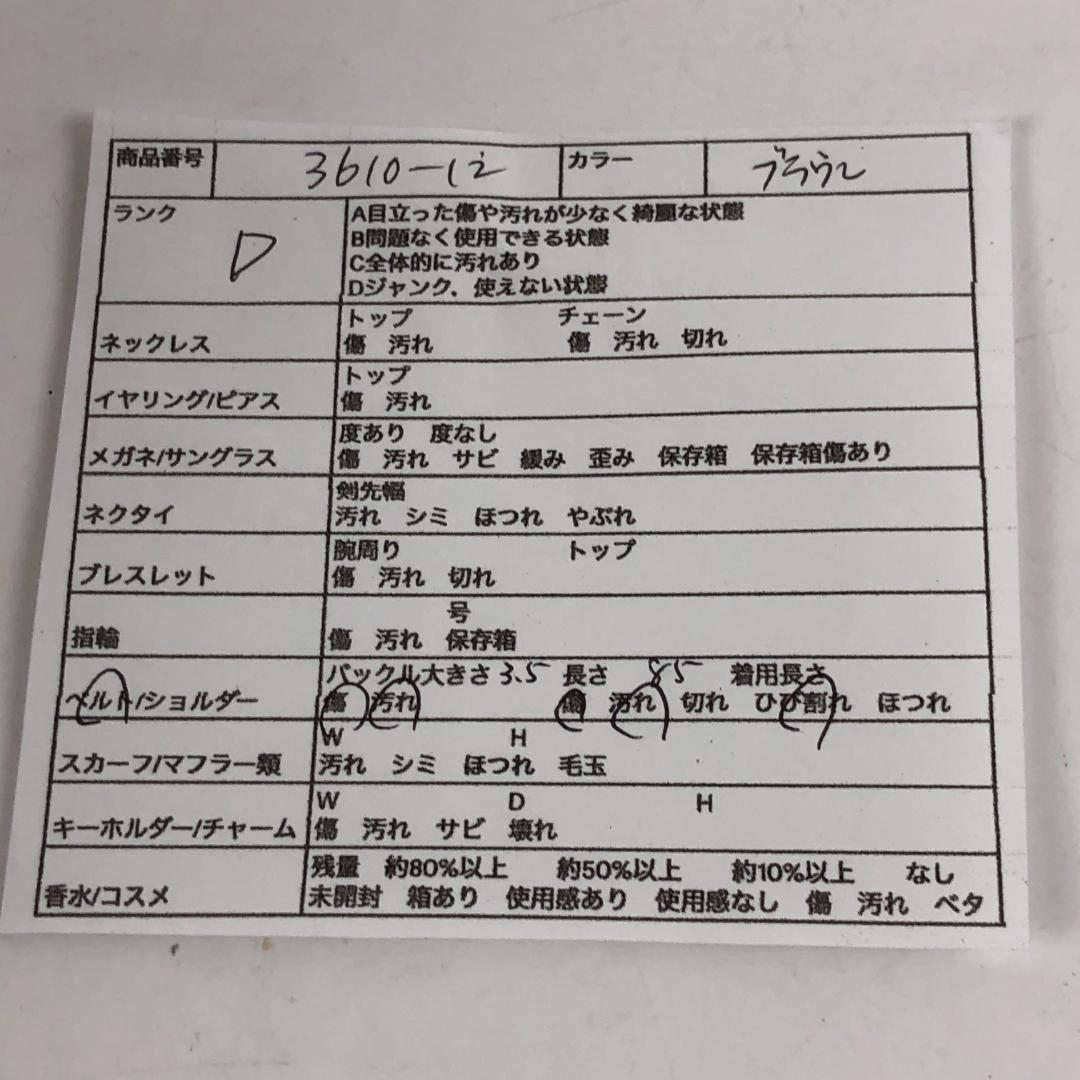 商品番号 3610-12 カラー ブラウン
ランク D
A目立った傷や汚れが少なく綺麗な状態
B問題なく使用できる状態
C全体的に汚れあり
Dジャンク、使えない状態
ネックレス
トップ チェーン
傷 汚れ 傷 汚れ 切れ
イヤリング/ピアス
トップ
傷 汚れ
メガネ/サングラス
度あり 度なし
傷 汚れ サビ 緩み 歪み 保存箱 保存箱傷あり
ネクタイ
剣先幅
汚れ シミ ほつれ やぶれ
ブレスレット
腕周り トップ
傷 汚れ 切れ
指輪
号
傷 汚れ 保存箱
ベルト/ショルダー
バックル大きさ 3.5 長さ 85 着用長さ
傷 汚れ 傷 汚れ 切れ ひび割れ ほつれ
スカーフ/マフラー類
W H
汚れ シミ ほつれ 毛玉
キーホルダー/チャーム
W D H
傷 汚れ サビ 壊れ
香水/コスメ
残量 約80%以上 約50%以上 約10%以上 なし
未開封 箱あり 使用感あり 使用感なし 傷 汚れ ベタ